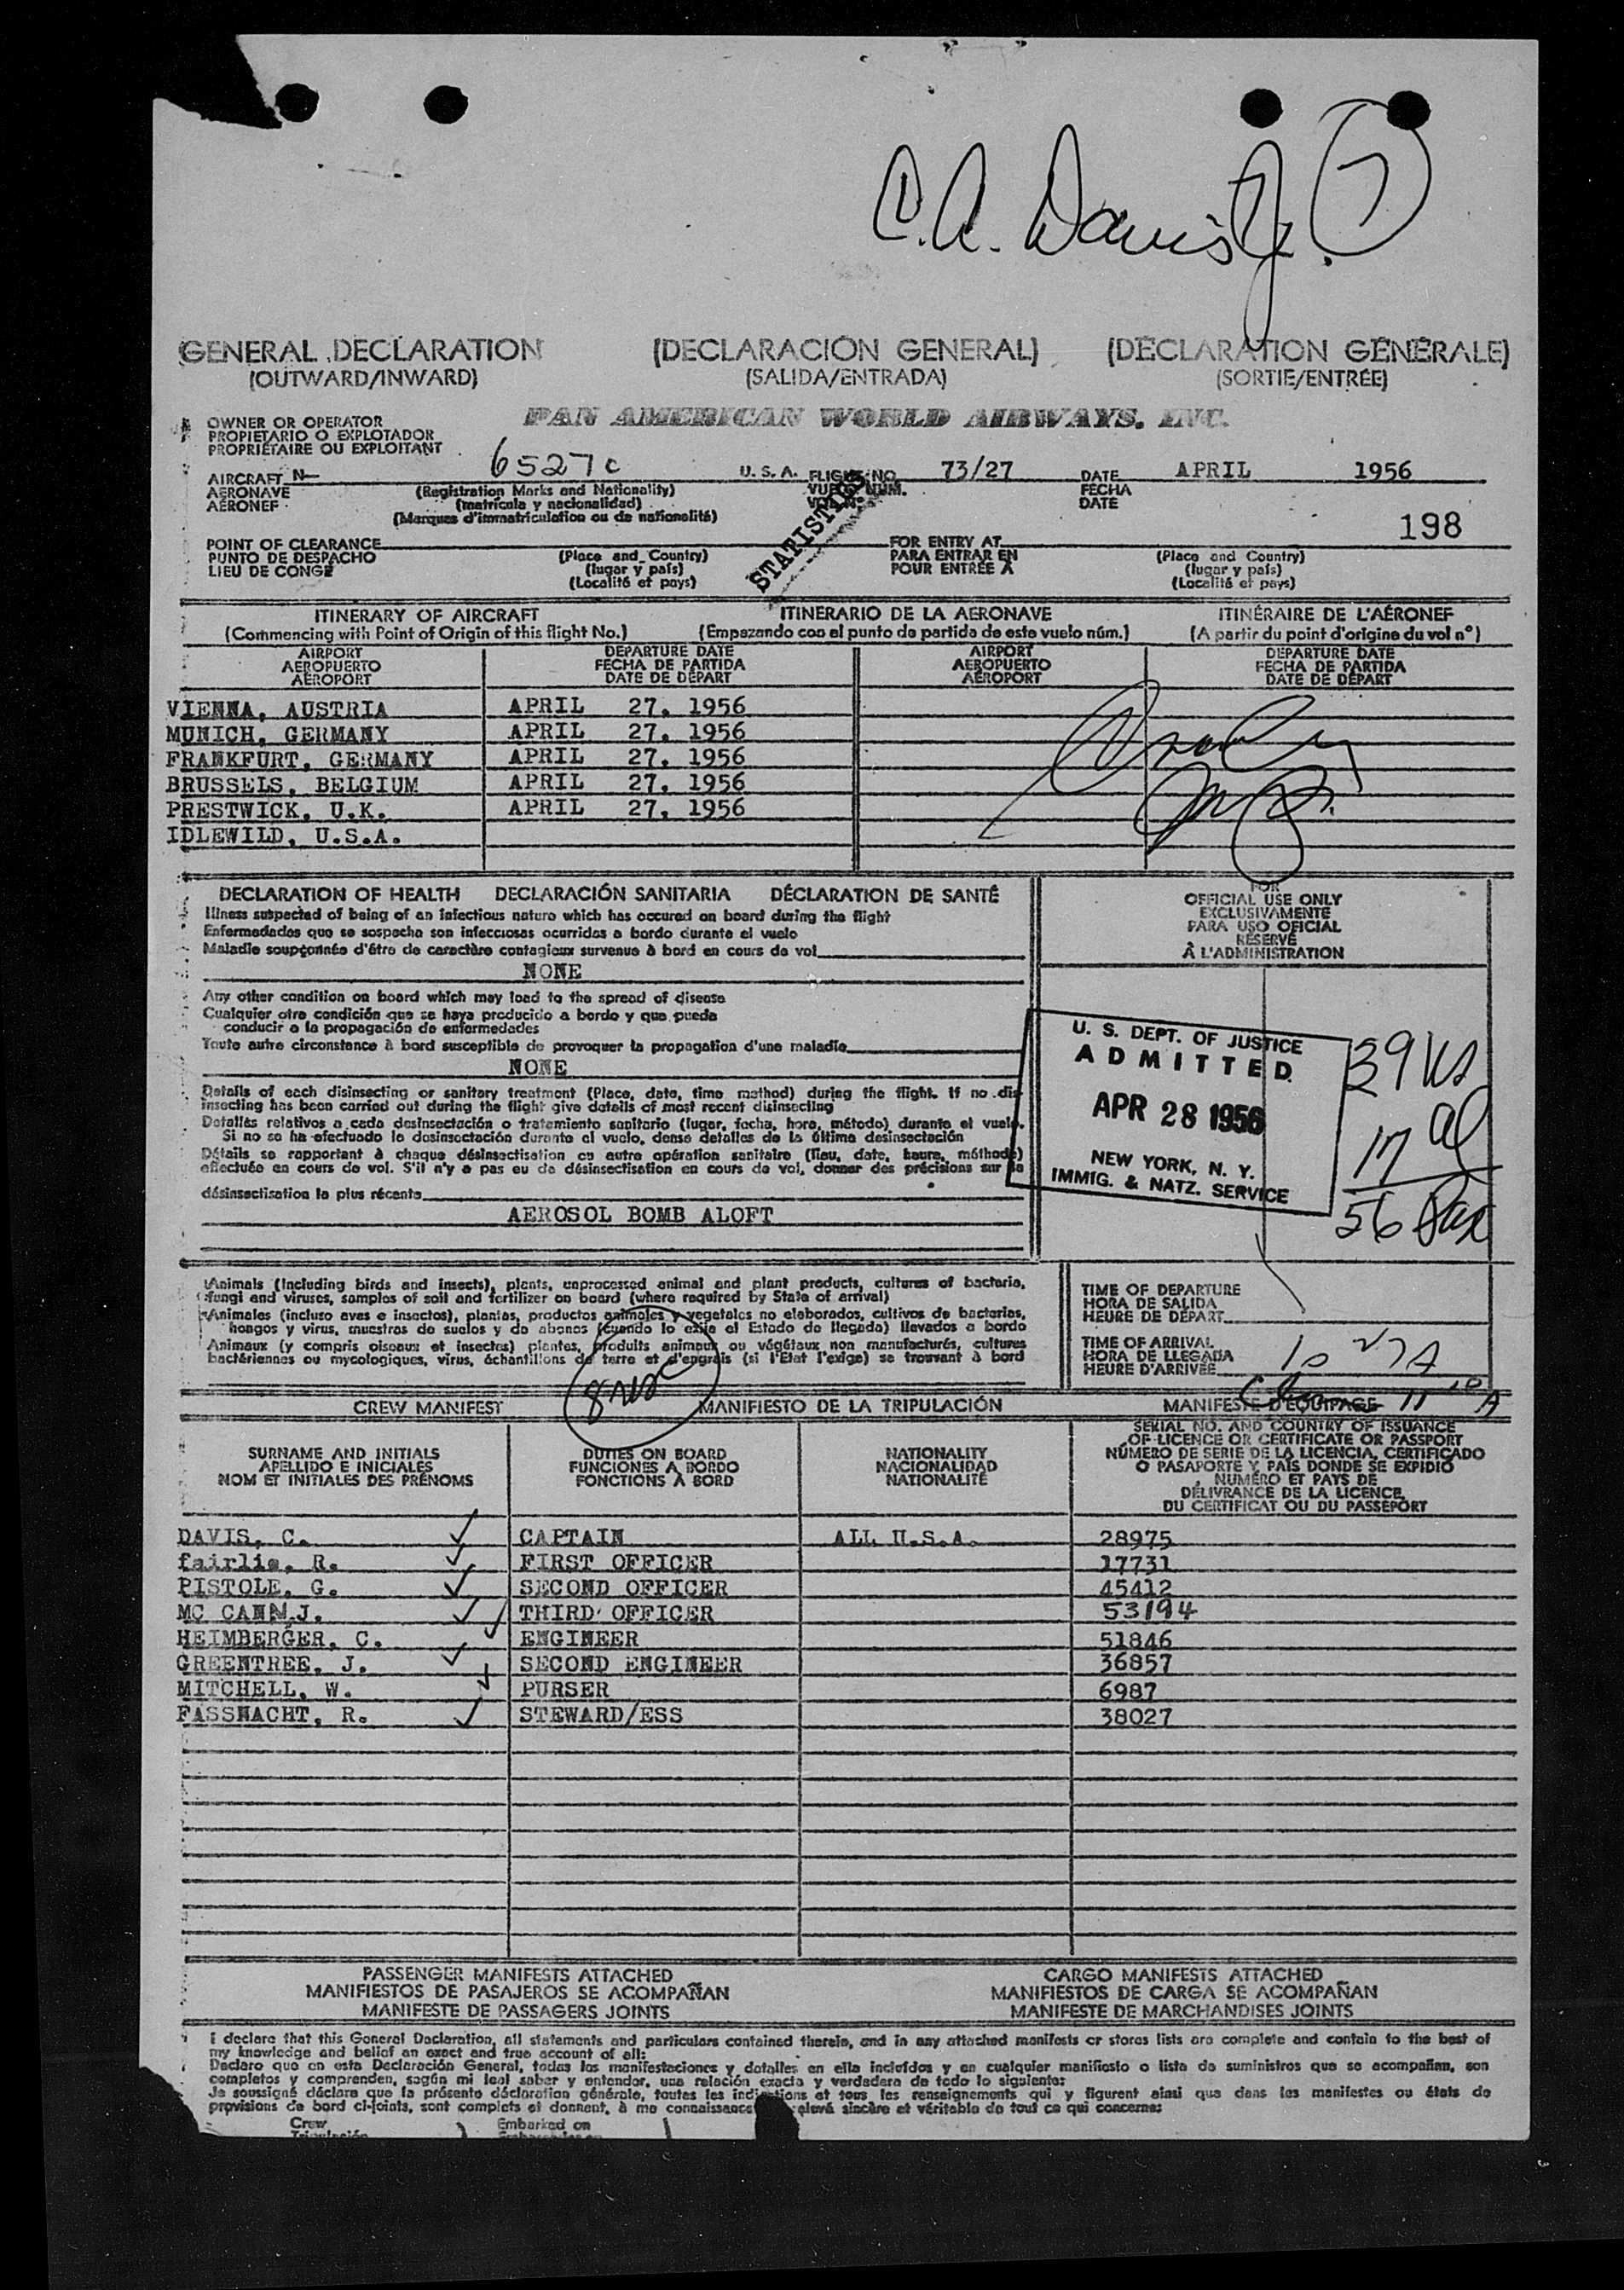 C. A. Davis Jr. 7
GENERAL DECLARATION (DECLARACIÓN GENERAL) (DÉCLARATION GÉNÉRALE)
(OUTWARD/INWARD) (SALIDA/ENTRADA) (SORTIE/ENTRÉE)
OWNER OR OPERATOR PAN AMERICAN WORLD AIRWAYS. INC.
PROPIETARIO O EXPLOTADOR
PROPRIÉTAIRE OU EXPLOITANT
AIRCRAFT N- 6527c U.S.A. FLIGHT NO. 73/27 DATE APRIL 1956
AERONAVE (Registration Marks and Nationality) VUELO NUM. FECHA
AÉRONEF (matrícula y nacionalidad) DATE
(Marques d'immatriculation ou de nationalité)
STATISTICS
198
POINT OF CLEARANCE FOR ENTRY AT
PUNTO DE DESPACHO (Place and Country) PARA ENTRAR EN (Place and Country)
LIEU DE CONGÉ (lugar y país) POUR ENTRÉE À (lugar y país)
(Localité et pays) (Localité et pays)
ITINERARY OF AIRCRAFT ITINERARIO DE LA AERONAVE ITINÉRAIRE DE L'AÉRONEF
(Commencing with Point of Origin of this flight No.) (Empezando con el punto de partida de este vuelo núm.) (A partir du point d'origine du vol n°)
AIRPORT DEPARTURE DATE AIRPORT DEPARTURE DATE
AEROPUERTO FECHA DE PARTIDA AEROPUERTO FECHA DE PARTIDA
AÉROPORT DATE DE DÉPART AÉROPORT DATE DE DÉPART
VIENNA, AUSTRIA APRIL 27, 1956
MUNICH, GERMANY APRIL 27, 1956
FRANKFURT, GERMANY APRIL 27, 1956
BRUSSELS, BELGIUM APRIL 27, 1956
PRESTWICK, U.K. APRIL 27, 1956
IDLEWILD, U.S.A.
DECLARATION OF HEALTH DECLARACIÓN SANITARIA DÉCLARATION DE SANTÉ
Illness suspected of being of an infectious nature which has occured on board during the flight
Enfermedades que se sospecha son infecciosas ocurridas a bordo durante el vuelo
Maladie soupçonnée d'être de caractère contagieux survenue à bord en cours de vol
NONE
Any other condition on board which may lead to the spread of disease
Cualquier otra condición que se haya producido a bordo y que pueda
conducir a la propagación de enfermedades
Toute autre circonstance à bord susceptible de provoquer la propagation d'une maladie
NONE
Details of each disinsecting or sanitary treatment (Place, date, time method) during the flight. If no dis-
insecting has been carried out during the flight give details of most recent disinsecting
Detalles relativos a cada desinsectación o tratamiento sanitario (lugar, fecha, hora, método) durante el vuelo.
Si no se ha efectuado la desinsectación durante el vuelo, dense detalles de la última desinsectación
Détails se rapportant à chaque désinsectisation ou autre opération sanitaire (lieu, date, heure, méthode)
effectuée en cours de vol. S'il n'y a pas eu de désinsectisation en cours de vol, donner des précisions sur la
désinsectisation la plus récente
AEROSOL BOMB ALOFT
FOR
OFFICIAL USE ONLY
EXCLUSIVAMENTE
PARA USO OFICIAL
RÉSERVÉ
À L'ADMINISTRATION
U. S. DEPT. OF JUSTICE
ADMITTED
APR 28 1956
NEW YORK, N. Y.
IMMIG. & NATZ. SERVICE
39 US
17 al
56 Pax
Animals (including birds and insects), plants, unprocessed animal and plant products, cultures of bacteria,
fungi and viruses, samples of soil and fertilizer on board (where required by State of arrival)
Animales (incluso aves e insectos), plantas, productos animales y vegetales no elaborados, cultivos de bacterias,
hongos y virus, muestras de suelos y de abonos (cuando lo exija el Estado de llegada) llevados a bordo
Animaux (y compris oiseaux et insectes) plantes, produits animaux ou végétaux non manufacturés, cultures
bactériennes ou mycologiques, virus, échantillons de terre et d'engrais (si l'Etat l'exige) se trouvant à bord
TIME OF DEPARTURE
HORA DE SALIDA
HEURE DE DÉPART
TIME OF ARRIVAL
HORA DE LLEGADA
HEURE D'ARRIVÉE 10 27 A
CREW MANIFEST MANIFIESTO DE LA TRIPULACIÓN MANIFESTE D'ÉQUIPAGE 11 10 A
SURNAME AND INITIALS DUTIES ON BOARD NATIONALITY SERIAL NO. AND COUNTRY OF ISSUANCE
APELLIDO E INICIALES FUNCIONES A BORDO NACIONALIDAD OF LICENCE OR CERTIFICATE OR PASSPORT
NOM ET INITIALES DES PRÉNOMS FONCTIONS À BORD NATIONALITÉ NÚMERO DE SERIE DE LA LICENCIA, CERTIFICADO
O PASAPORTE Y PAÍS DONDE SE EXPIDIÓ
NUMÉRO ET PAYS DE
DÉLIVRANCE DE LA LICENCE,
DU CERTIFICAT OU DU PASSEPORT
DAVIS, C. CAPTAIN ALL U.S.A. 28975
fairlie, R. FIRST OFFICER 17731
PISTOLE, G. SECOND OFFICER 45412
MC CANN.J. THIRD OFFICER 53194
HEIMBERGER, C. ENGINEER 51846
GREENTREE, J. SECOND ENGINEER 36857
MITCHELL, W. PURSER 6987
FASSNACHT, R. STEWARD/ESS 38027
PASSENGER MANIFESTS ATTACHED CARGO MANIFESTS ATTACHED
MANIFIESTOS DE PASAJEROS SE ACOMPAÑAN MANIFIESTOS DE CARGA SE ACOMPAÑAN
MANIFESTE DE PASSAGERS JOINTS MANIFESTE DE MARCHANDISES JOINTS
I declare that this General Declaration, all statements and particulars contained therein, and in any attached manifests or stores lists are complete and contain to the best of
my knowledge and belief an exact and true account of all:
Declaro que en esta Declaración General, todas las manifestaciones y detalles en ella incluídos y en cualquier manifiesto o lista de suministros que se acompañan, son
completos y comprenden, según mi leal saber y entender, una relación exacta y verdadera de todo lo siguiente:
Je soussigné déclare que la présente déclaration générale, toutes les indications et tous les renseignements qui y figurent ainsi que dans les manifestes ou états de
provisions de bord ci-joints, sont complets et donnent, à ma connaissance relevé sincère et véritable de tout ce qui concerne:
Crew Embarked on
Tripulación